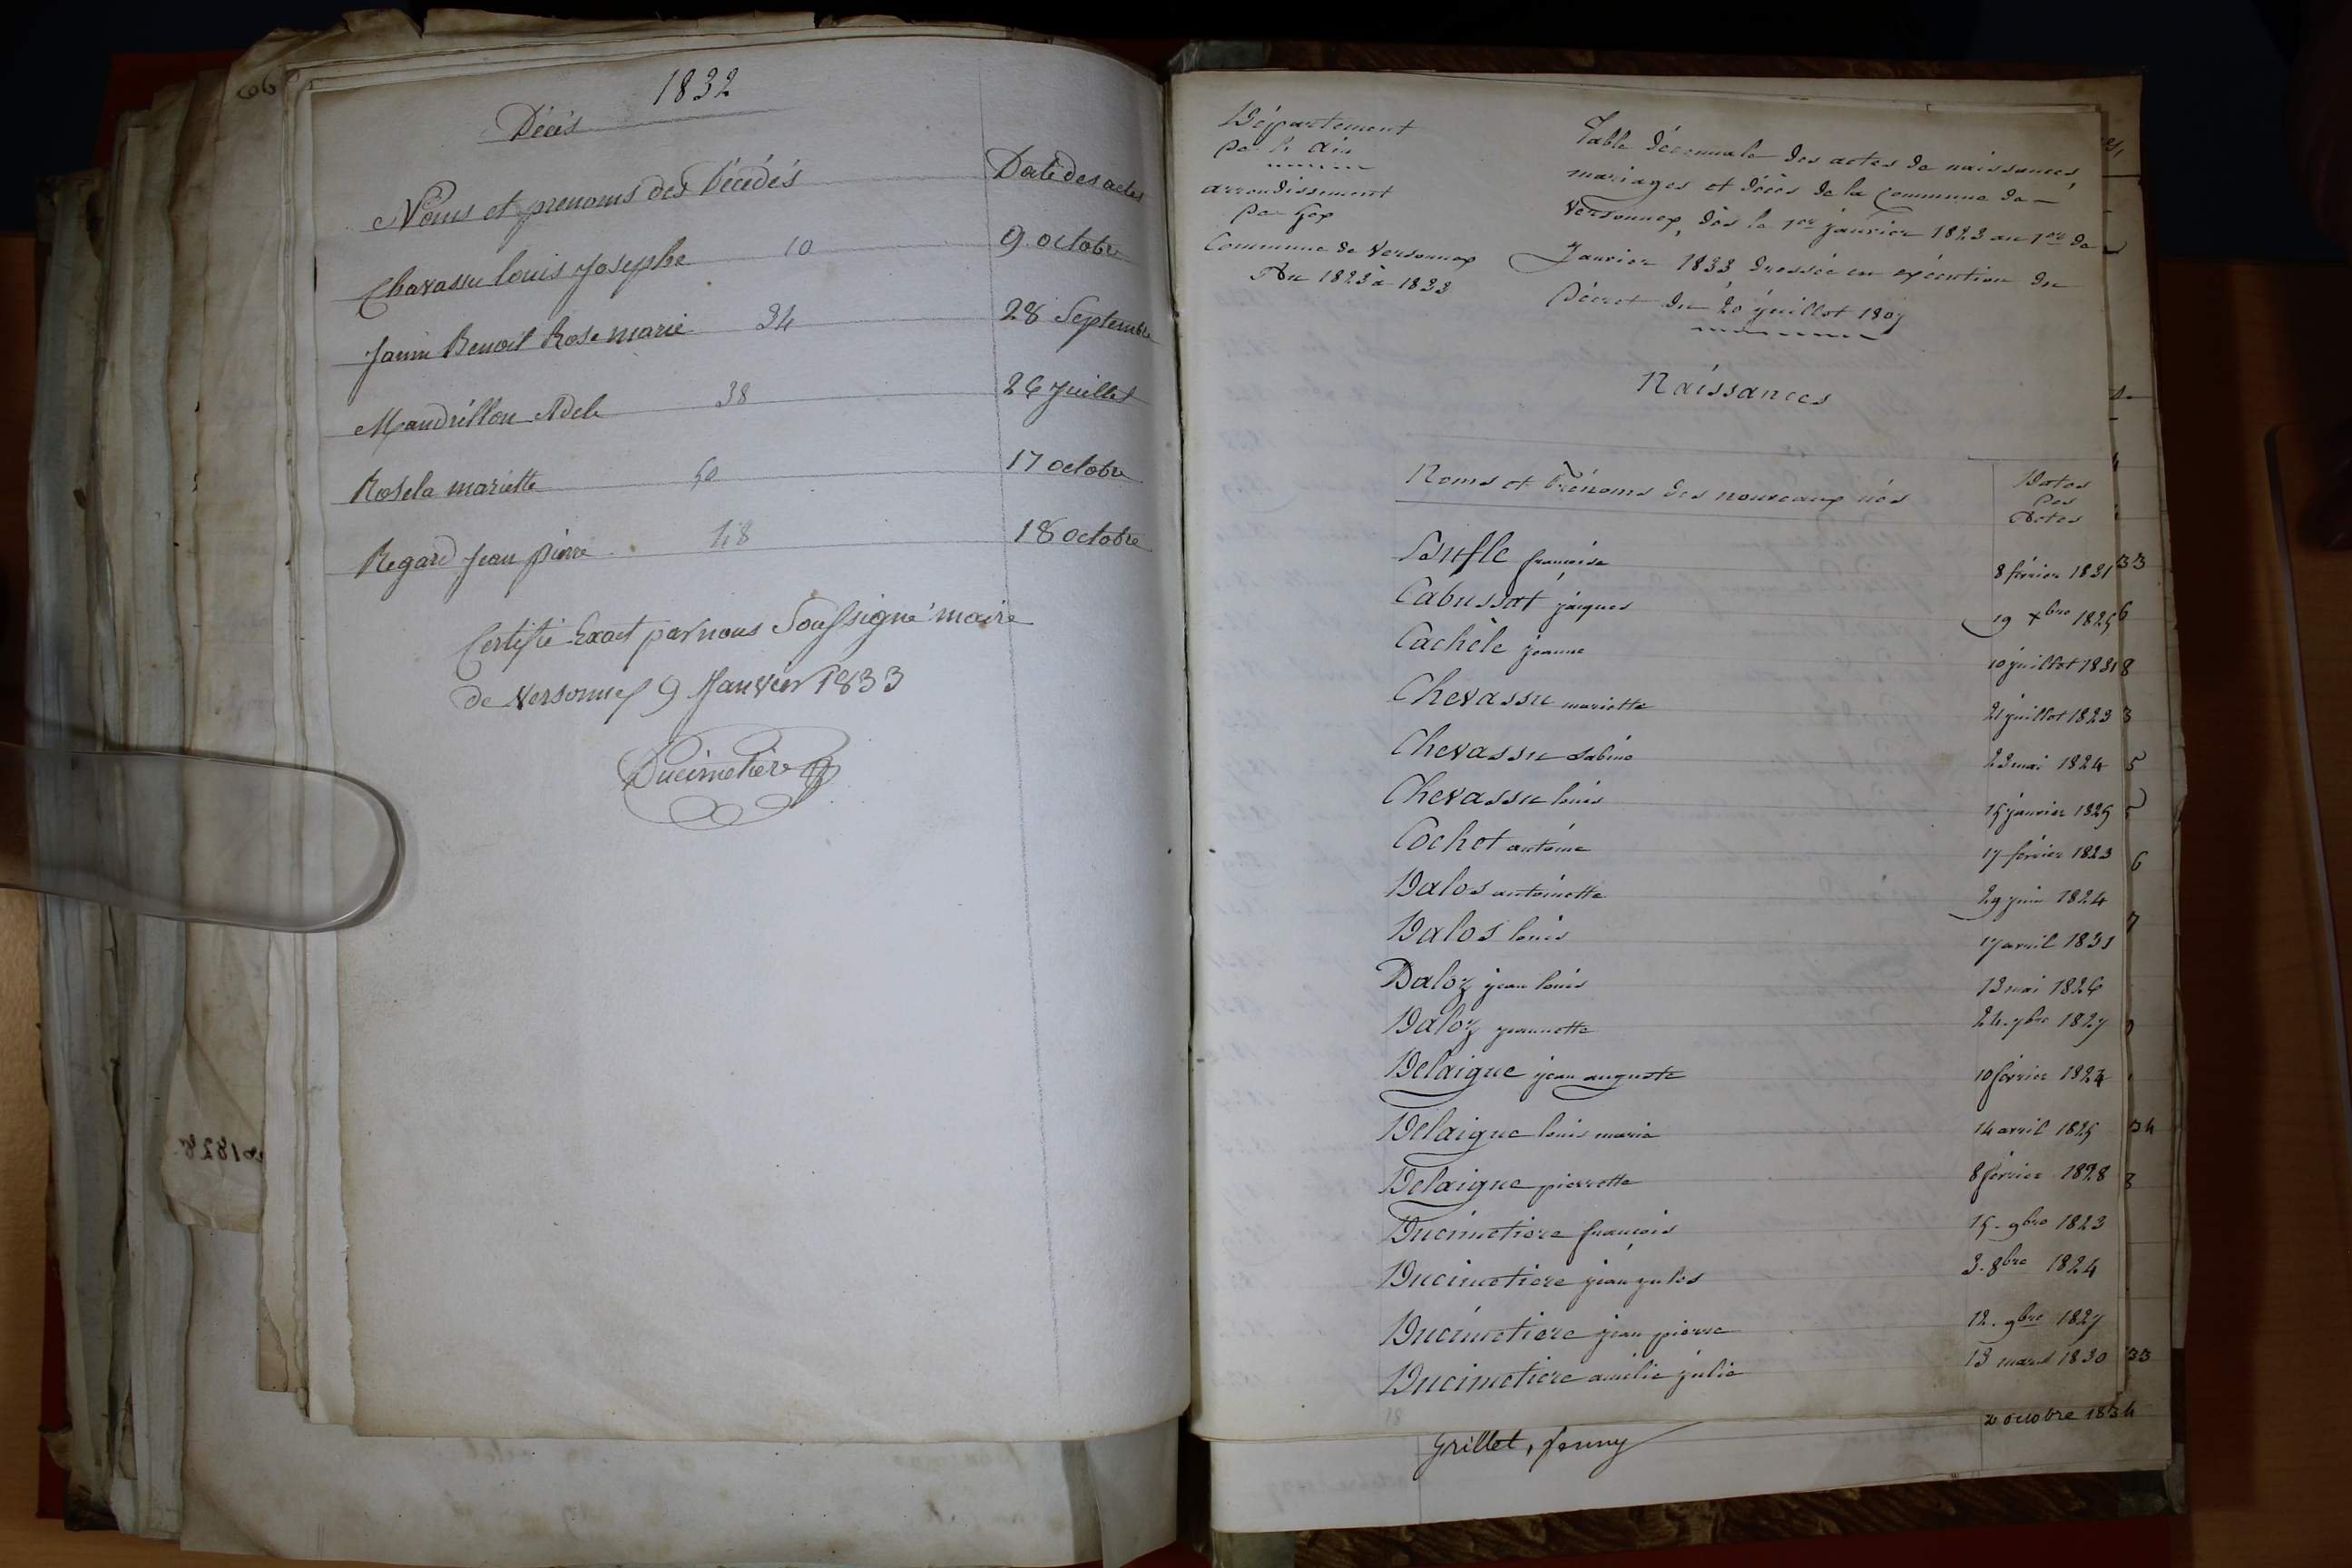 1832
Décès
Noms et prenoms des Décédés Date des actes
Chavassu louis Josephe 10 9 octobre
Janin Benoit Rose marie 34 28 Septembre
Mandrillon Adele 38 26 Juillet
Rosela mariette 60 17 octobre
Regard Jean pierre 48 18 octobre
Certifié Exact par nous Soussigné maire
de Versonnex 9 Janvier 1833
Ducimetière
Département
De l'Ain
arrondissement
De Gex
Commune de Versonnex
An 1823 à 1833
Table décennale des actes de naissances,
mariages et décès de la Commune de
Versonnex, dès le 1er janvier 1823 au 1er de
Janvier 1833 dressée en exécution du
Décret du 20 juillet 1807
Naissances
Noms et Prénoms des nouveaux nés Dates
Des
Actes
Buffle françoise 8 février 1831
Cabussat jaques 19 xbre 1825
Cachèle jeanne 10 juillet 1831
Chevassu mariette 21 juillet 1823
Chevassu Sabine 23 mai 1824
Chevassu louis 15 janvier 1825
Cochet antoine 17 février 1823
Dalos antoinette 29 juin 1824
Dalos louis 17 avril 1831
Daloz jean louis 13 mai 1826
Daloz jeannette 24. 7bre 1827
Delaigue jean auguste 10 février 1824
Delaigue louis marie 14 avril 1825
Delaigue pierrette 8 février 1828
Ducimetiere françois 15. 9bre 1823
Ducimetiere jean jules 3. 8bre 1824
Ducimetiere jean pierre 12. 9bre 1827
Ducimetiere amélie julie 13 mars 1830
Grillet, fanny octobre 1834